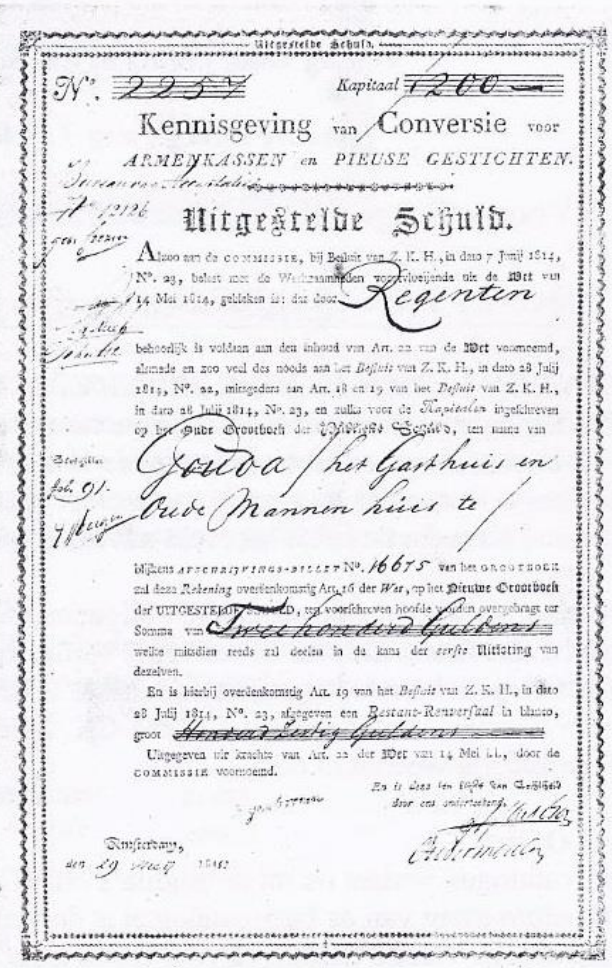 Uitgestelde Schuld.
No. 2257 Kapitaal 1200
Kennisgeving van Conversie voor
ARMENKASSEN en PIEUSE GESTICHTEN.
No 12126
Uitgestelde Schuld.
Alzoo aan de COMMISSIE, bij Besluit van Z. K. H., in dato 7 Junij 1814,
No. 23, belast met de Werkzaamheden voortvloeijende uit de Wet van
14 Mei 1814, gebleken is: dat door Regenten
behoorlijk is voldaan aan den inhoud van Art. 22 van de Wet voornoemd,
alsmede en zoo veel des noods aan het Besluit van Z. K. H., in dato 28 Julij
1814, No. 22, mitsgaders aan Art. 18 en 19 van het Besluit van Z. K. H.,
in dato 28 Julij 1814, No. 23, en zulks voor de Kapitalen ingeschreven
op het Oude Grootboek der Schuld, ten name van
Gouda / het Gasthuis en
Oude Mannen huis te /
fol. 91.
blijkens AFSCHRIJVINGS-BILLET No. 16675 van het GROOTBOEK
zal deze Rekening overeenkomstig Art. 16 der Wet, op het Nieuwe Grootboek
der UITGESTELDE SCHULD, ten voorschreven hoofde worden overgebragt ter
Somma van Twee honderd Guldens
welke mitsdien reeds zal deelen in de kans der eerste Uitloting van
dezelven.
En is hierbij overeenkomstig Art. 19 van het Besluit van Z. K. H., in dato
28 Julij 1814, No. 23, afgegeven een Restant-Renversaal in blanco,
groot Guldens
Uitgegeven uit krachte van Art. 22 der Wet van 14 Mei l.l., door de
COMMISSIE voornoemd.
En is deze ten blijke van Echtheid
door ons onderteekend.
Amsterdam,
den 29 1815